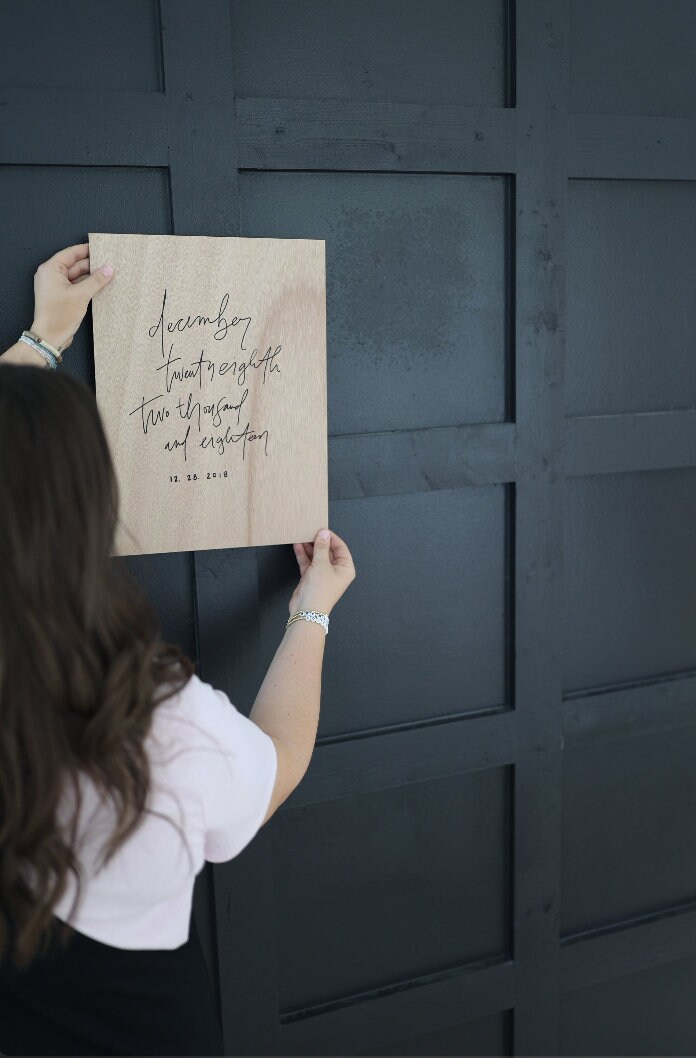 december
twenty eighth
two thousand
and eighteen
12. 28. 2018